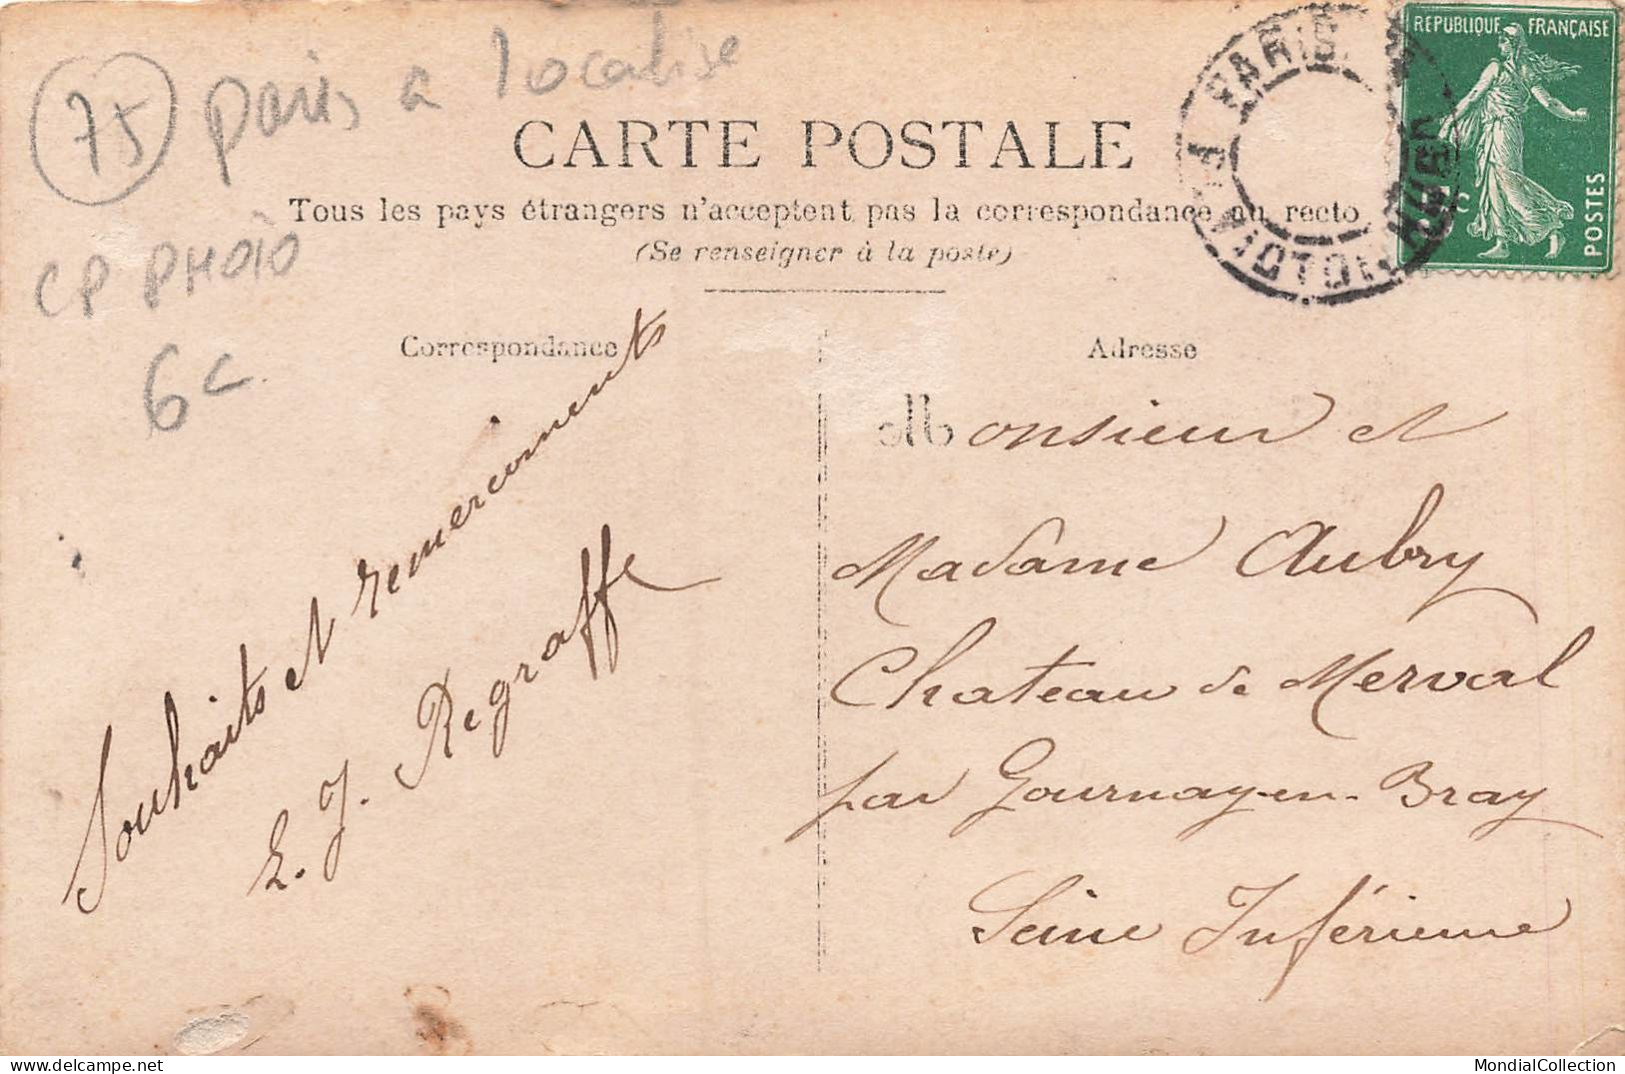 75 paris a localise
CP PHOTO
6c
CARTE POSTALE
Tous les pays étrangers n'acceptent pas la correspondance au recto
(Se renseigner à la poste)
REPUBLIQUE FRANÇAISE
POSTES
5c
PARIS
Correspondance
Souhaits et remerciements
E. J. Regraffe
Adresse
Monsieur et
Madame Aubry
Chateau de Merval
par Gournay-en-Bray
Seine Inférieure
MondialCollection